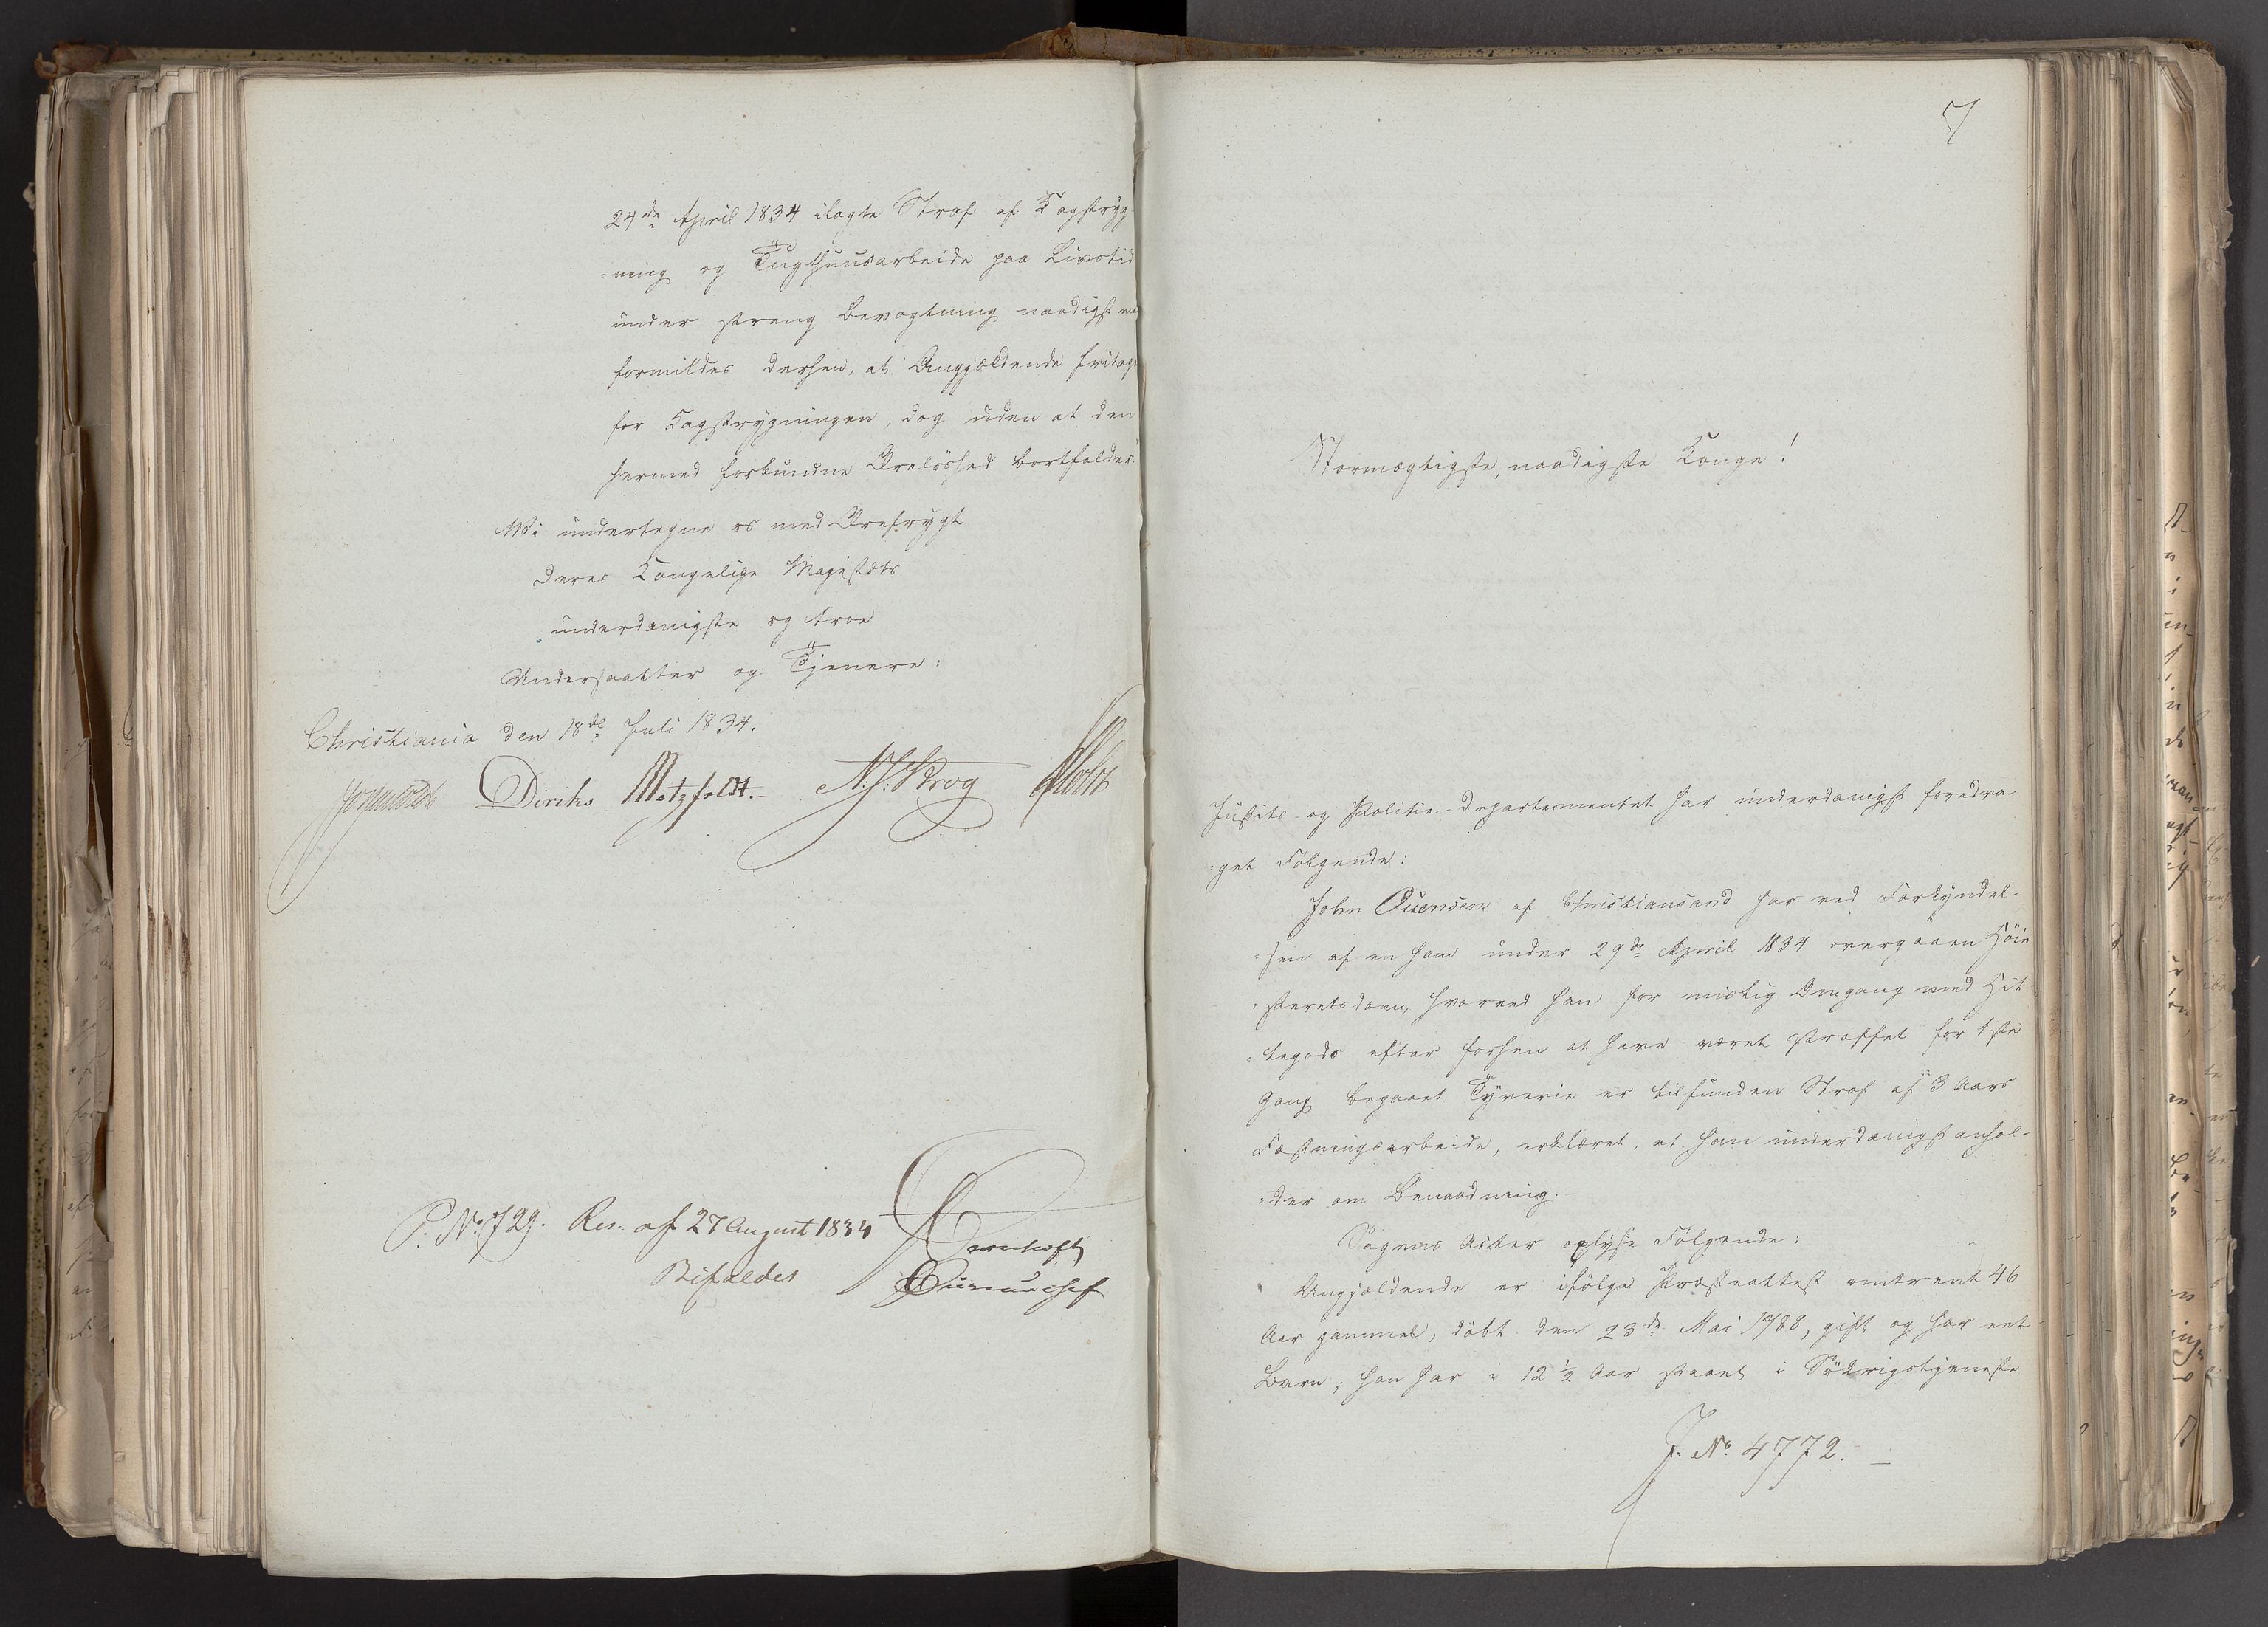 24de April 1834 ilagte Straf af Kagstryg
-ning og Tugthuusarbeide paa Livstid
under streng Bevogtning naadigst maa
formildes derhen, at Angjældende fritages
for Kagstrygningen, dog uden at den
hermed forbundne Æresløshed bortfalder.
Vi undertegne os med Ærefrygt
Deres Kongelige Majestæts
underdanigste og troe
Undersaatter og Tjenere:
Christiania den 18de Juli 1834.
Diriks Motzfeldt. N. J. Krog Holst
P: No 729. Res. af 27 August 1834
Bifaldes
7
Stormægtigste, naadigste Konge!
Justits- og Politie-Departementet har underdanigst foredra-
-get Følgende:
John Svensen af Christiansand har ved Forkyndel-
-sen af en ham under 29de April 1834 overgaaen Høie
-steretsdom, hvorved han for mislig Omgang med Hit-
-tegods efter forhen at have været straffet for 1ste
Gang begaaet Tyverie er tilfunden Straf af 3 Aars
Fæstningsarbeide, erklæret, at han underdanigst anhol-
-der om Benaadning.
Sagens Acter oplyse Følgende:
Angjældende er ifølge Præsteattest omtrent 46
Aar gammel, døbt den 23de Mai 1788, gift og har eet
Barn; han har i 12½ Aar staaet i Søkrigstjeneste
J. No 4772.